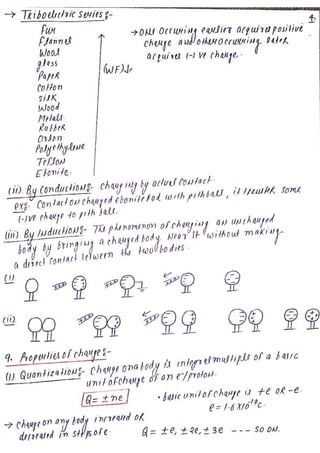 → Triboelectric series :-
Fur
Flannel
Wool
glass
Paper
Cotton
silk
Wood
Metals
Rubber
Orlon
Polyethylene
Teflon
Ebonite.
(WF)↓
1.
→ one occurring earlier acquires positive
charge and other occurring later
acquires (-) ve charge.
(ii) By Conduction:- charging by actual contact.
exg. Contact on charged ebonite rod with pith ball, it transfer some
(-)ve charge to pith ball.
(iii) By Induction:- The phenomenon of charging an unchanged
body by bringing a charged body. Near It without making
a direct contact between the two bodies.
(i)
(ii)
9. Properties of charge:-
(1) Quantization:- Charge on a body is integral multiple of a basic
unit of charge of an e⁻/proton.
Q = ± ne
• basic unit of charge is +e OR -e.
e = 1.6 X 10⁻¹⁹c.
→ charge on any body increased OR
decreased in step of e.
Q = ± e, ± 2e, ± 3e --- so on.